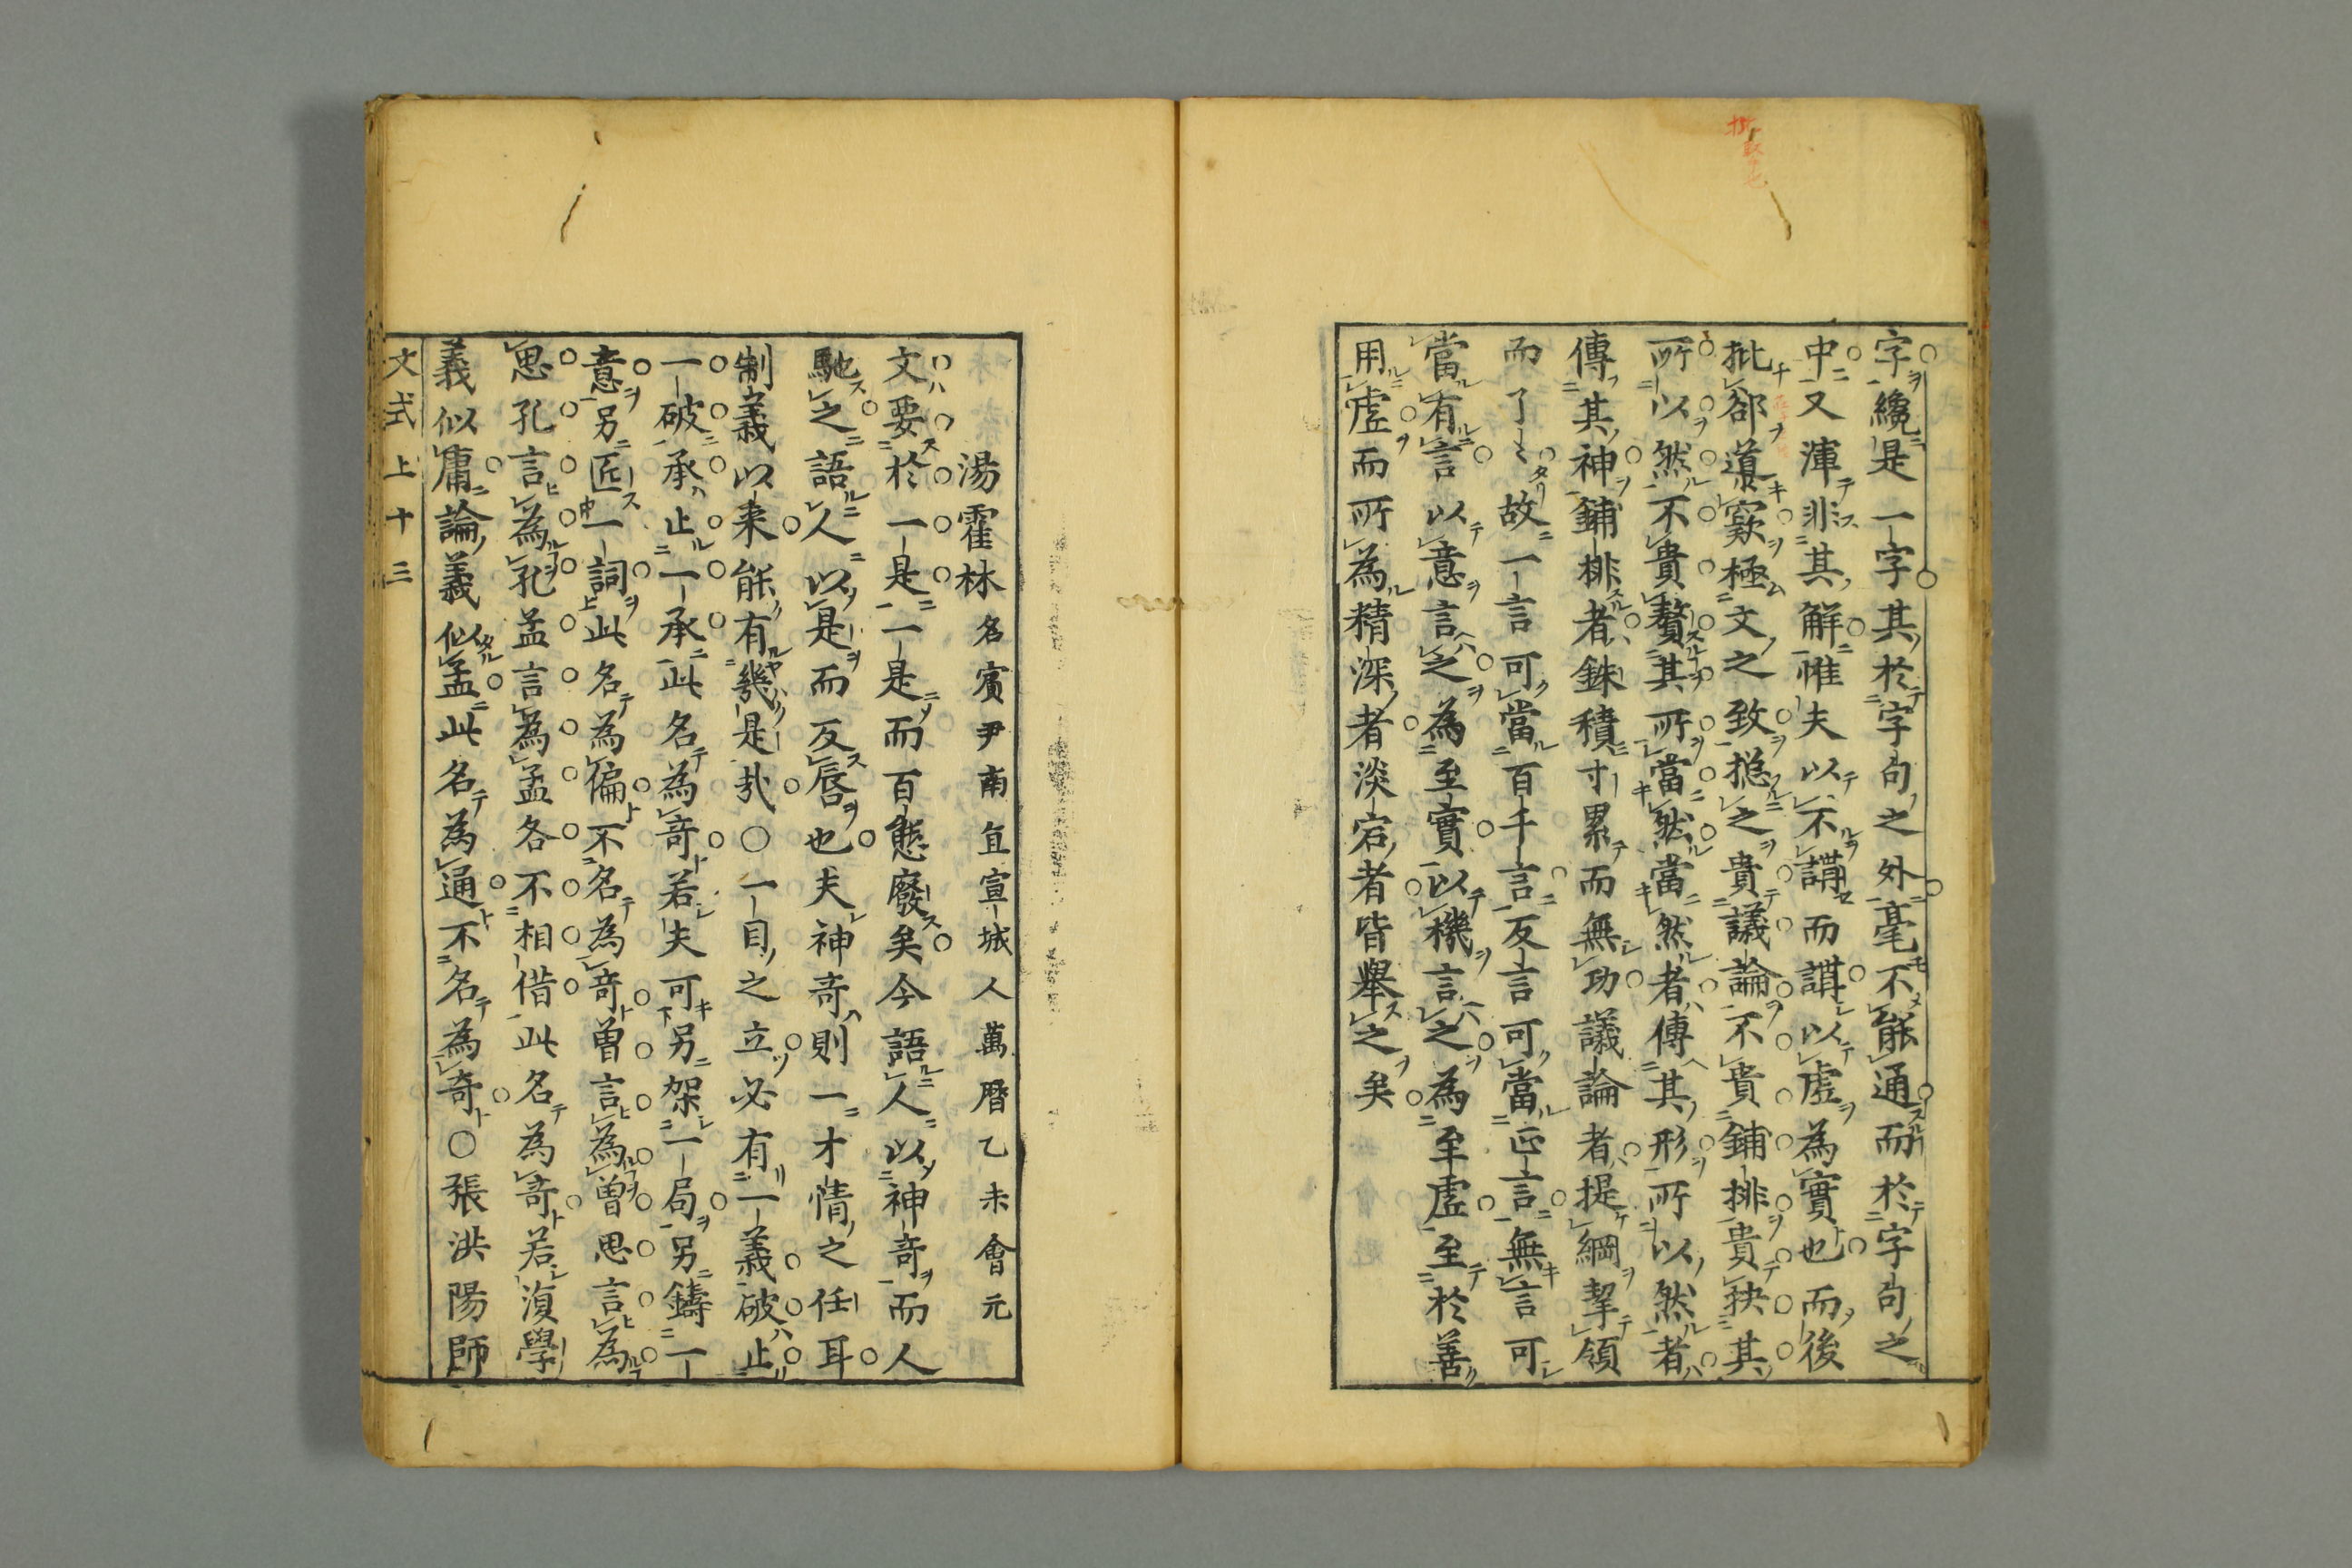 字纔是一字其於字句之外毫不能通而於字句之
中又渾非其解惟夫以不講而講以虛為實也而後
批郤導窾極文之致揔之貴議論不貴鋪排貴抉其
所以然不貴贅其所當然當然者傳其形所以然者
傳其神鋪排者銖積寸累而無功議論者提綱挈領
而了〻故一言可當百千言反言可當正言無言可
當有言以意言之為至實以機言之為至虛至於善
用虛而所為精深者淡宕者皆舉之矣
湯霍林名賓尹南直宣城人萬曆乙未會元
文要於一是一是而百態廢矣今語人以神奇而人
馳之語人以是而反唇也夫神奇則一才情之任耳
制義以来能有幾是哉○一目之立必有一義破止
一破承止一承此名為奇若夫可另架一局另鑄一
意另匠一詞此名為偏不名為奇曾言為曾思言為
思孔言為孔孟言為孟各不相借此名為奇若湏學
義似庸論義似孟此名為通不名為奇○張洪陽師
文式上十三